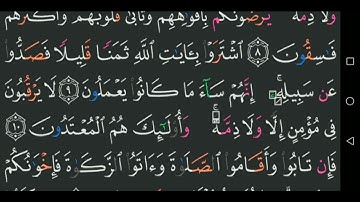 وَلَا ذِمَّةً يُرْضُونَكُم بِأَفْوَاهِهِمْ وَتَأْبَىٰ قُلُوبُهُمْ وَأَكْثَرُهُمْ
فَـٰسِقُونَ ٨ ٱشْتَرَوْا۟ بِـَٔايَـٰتِ ٱللَّهِ ثَمَنًا قَلِيلًا فَصَدُّوا۟
عَن سَبِيلِهِۦٓ ۚ إِنَّهُمْ سَآءَ مَا كَانُوا۟ يَعْمَلُونَ ٩ لَا يَرْقُبُونَ
فِى مُؤْمِنٍ إِلًّا وَلَا ذِمَّةً ۚ وَأُو۟لَـٰٓئِكَ هُمُ ٱلْمُعْتَدُونَ ١٠
فَإِن تَابُوا۟ وَأَقَامُوا۟ ٱلصَّلَوٰةَ وَءَاتَوُا۟ ٱلزَّكَوٰةَ فَإِخْوَٰنُكُمْ